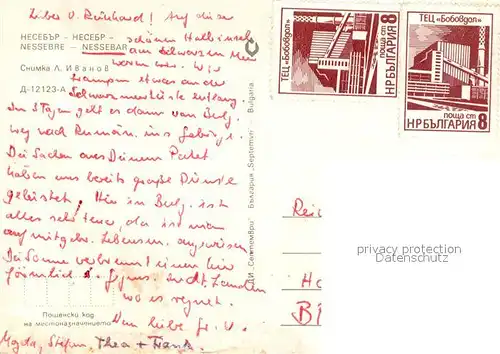 Lieber V. Reinhard! Auf dieser
НЕСЕБЪР - НЕСЕБР -
schönen Halbinsel
NESSEBRE - NESSEBAR
am Schwarzen Meer
waren wir. Wir
Снимка Л. Иванов
trampen etwas an der
Д-12123-А
Schwarzmeerküste entlang.
In 5 Tagen geht es dann von Bulg.
weg nach Rumän. ins Gebirge.
Die Sachen aus Deinem Paket
haben uns bereits große Dienste
geleistet! Hier in Bulg. ist
alles sehr teuer, da ist man
auf mitgebr. Lebensm. angewiesen.
Die Sonne verbrennt einen hier
förmlich
wo es regnet.
Dein liebe
Magda, Stefan, Thea + Frank.
Пощенски код
на местоназначението
ДИ „Септември" България "Septemvri" Bulgaria
ТЕЦ „Бобовдол"
поща ст
НРБЪЛГАРИЯ 8
ТЕЦ „Бобовдол"
поща ст
НРБЪЛГАРИЯ 8
privacy protection
Datenschutz